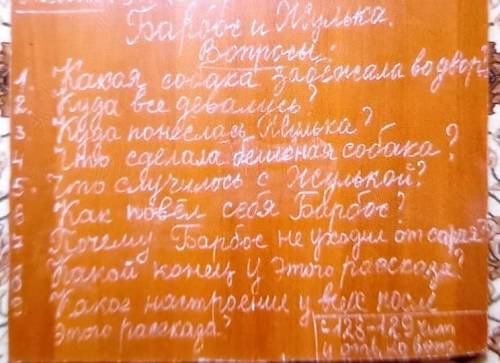 Барбос и Жулька.
Вопросы:
1. Какая собака забежала во двор?
2. Куда все девались?
3. Куда понеслась Жулька?
4 Что сделала бешеная собака?
5. Что случилось с Жулькой?
6 Как повёл себя Барбос?
7 Почему Барбос не уходил от сарая?
8 Какой конец у этого рассказа?
9 Какое настроение у всех после
этого рассказа?
с 128-129 чит
и отв. на вопр.